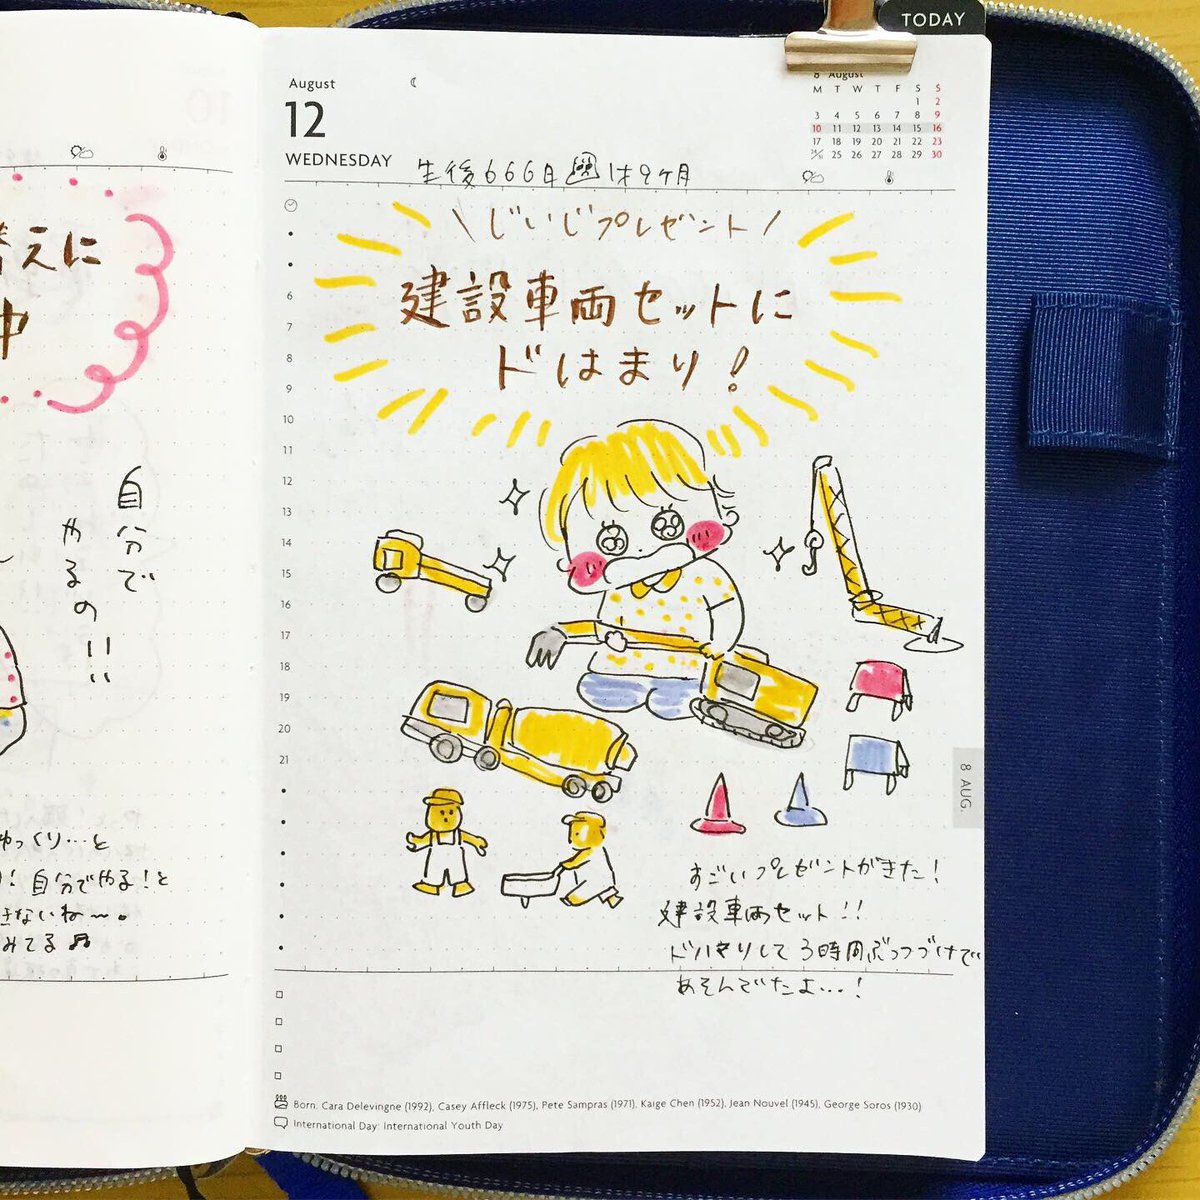 替えに
中
自分で
やるの!!
ゆっくり…と
!自分でやる!と
きないね〜。
みてる♬
TODAY
August
12
WEDNESDAY
8 August
M T W T F S S
1 2
3 4 5 6 7 8 9
10 11 12 13 14 15 16
17 18 19 20 21 22 23
24/31 25 26 27 28 29 30
生後666日 1才9ヶ月
\じいじプレゼント/
建設車両セットに
ドはまり!
6
7
8
9
10
11
12
13
14
15
16
17
18
19
20
21
8 AUG.
すごいプレゼントがきた!
建設車両セット!!
ドハマりして3時間ぶっつづけで
あそんでたよ…!
Born: Cara Delevingne (1992), Casey Affleck (1975), Pete Sampras (1971), Kaige Chen (1952), Jean Nouvel (1945), George Soros (1930)
International Day: International Youth Day